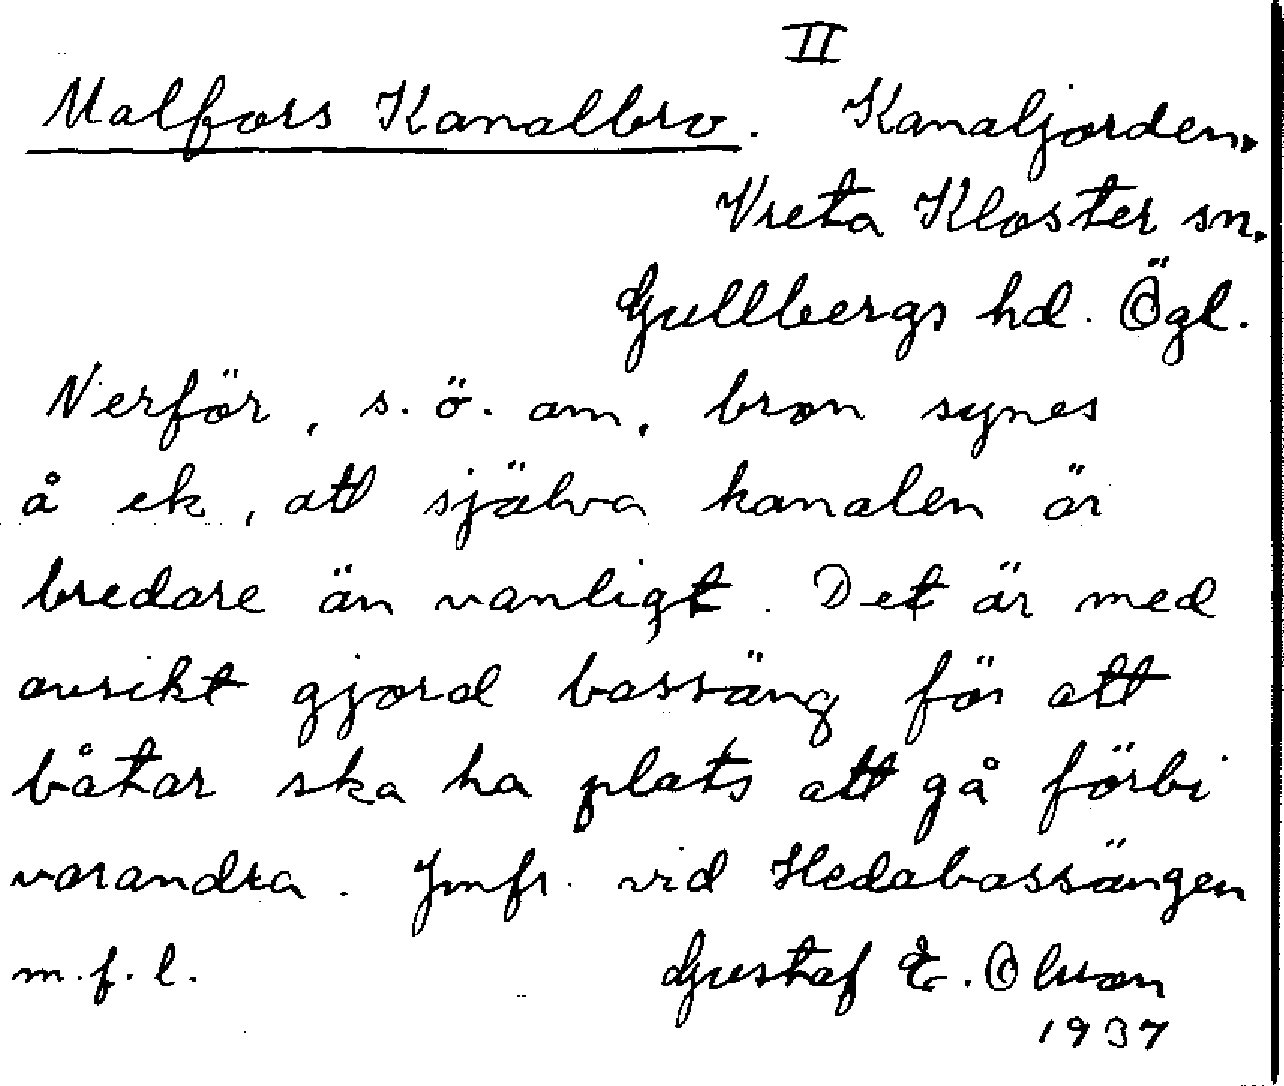 II
Malfors Kanalbro. Kanaljorden.
Vreta Kloster sn.
Gullbergs hd. Ögl.
Nerför, s.ö. om, bron synes
å ek, att själva kanalen är
bredare än vanligt. Det är med
avsikt gjord bassäng för att
båtar ska ha plats att gå förbi
varandra. Jmfr. vid Hedabassängen
m.f.l. Gustaf E. Olsson
1937